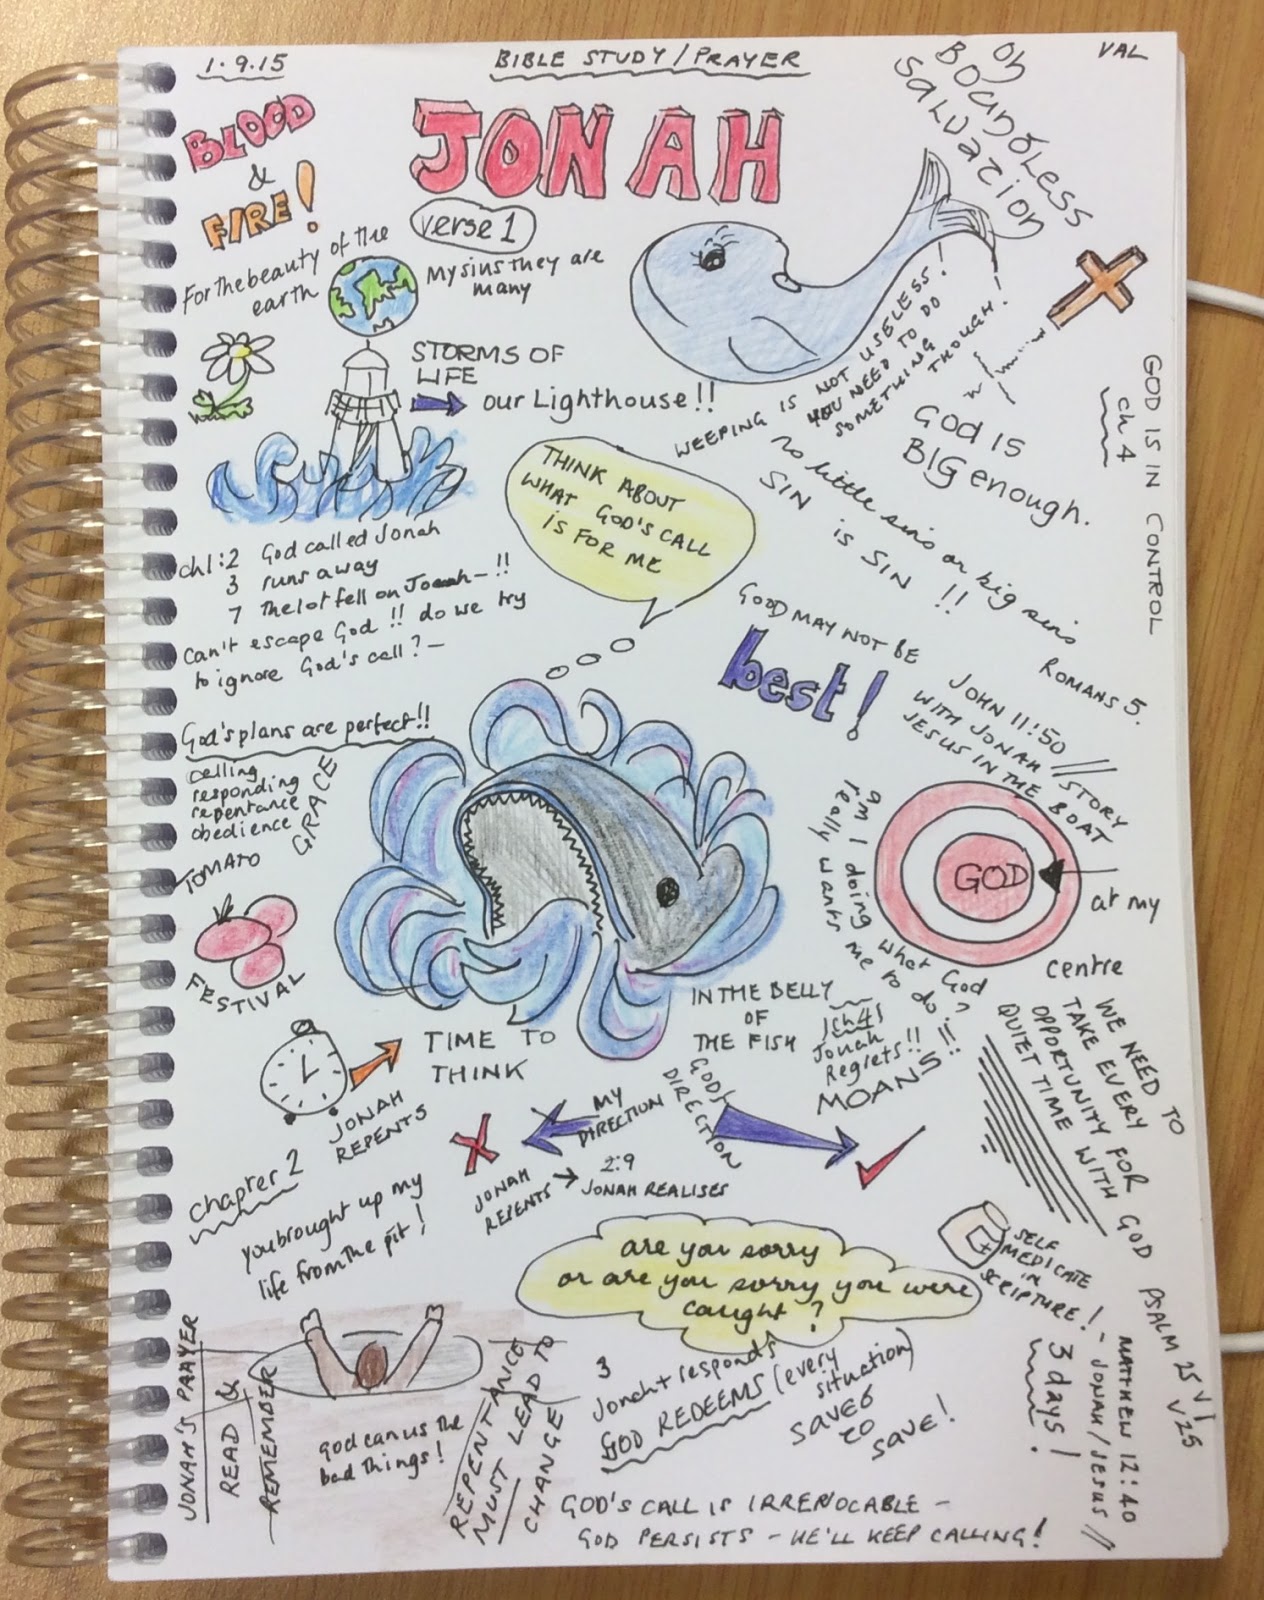 1.9.15
BIBLE STUDY/PRAYER
VAL
BLOOD
&
FIRE!
JONAH
verse 1
Oh
BOUNDLESS
SALVATION
For the beauty of the
earth
My sins they are
many
STORMS OF
LIFE
our Lighthouse!!
WEEPING IS NOT USELESS!
YOU NEED TO DO
SOMETHING
THOUGH!
God is
BIG enough.
GOD IS IN CONTROL
ch 4
No little sins or big sins
SIN is SIN !!
ROMANS 5.
THINK ABOUT
WHAT GOD'S CALL
IS FOR ME
ch1:2 God called Jonah
3 runs away
7 The lot fell on Jonah-!!
Can't escape God !! do we try
to ignore God's call?-
GOOD MAY NOT BE
best!
JOHN 11:50
WITH JONAH // STORY
JESUS IN THE BOAT
God's plans are perfect!!
calling
responding
repentance
obedience
GRACE
TOMATO
FESTIVAL
am I doing what God
really wants me to do?!!
GOD
at my
centre
TIME TO
THINK
IN THE BELLY
OF
THE FISH
Jonah
Regrets!!
MOANS!!
WE NEED TO
TAKE EVERY
OPPORTUNITY FOR
QUIET TIME WITH GOD
JONAH
REPENTS
MY
DIRECTION
GOD'S
DIRECTION
JONAH
REPENTS
2:9
JONAH REALISES
chapter 2
you brought up my
life from the pit!
are you sorry
or are you sorry you were
caught?
SELF
MEDICATE
in
SCRIPTURE!
PSALM 25 v1
v25
MATTHEW 12:40
- JONAH/JESUS //
3 days!
JONAH'S PRAYER
READ &
REMEMBER
God can us the
bad things!
REPENTANCE
MUST LEAD TO
CHANGE
3
Jonah + responds
GOD REDEEMS (every
situation)
SAVED
TO
SAVE!
GOD'S CALL IS IRREVOCABLE -
GOD PERSISTS - HE'LL KEEP CALLING!